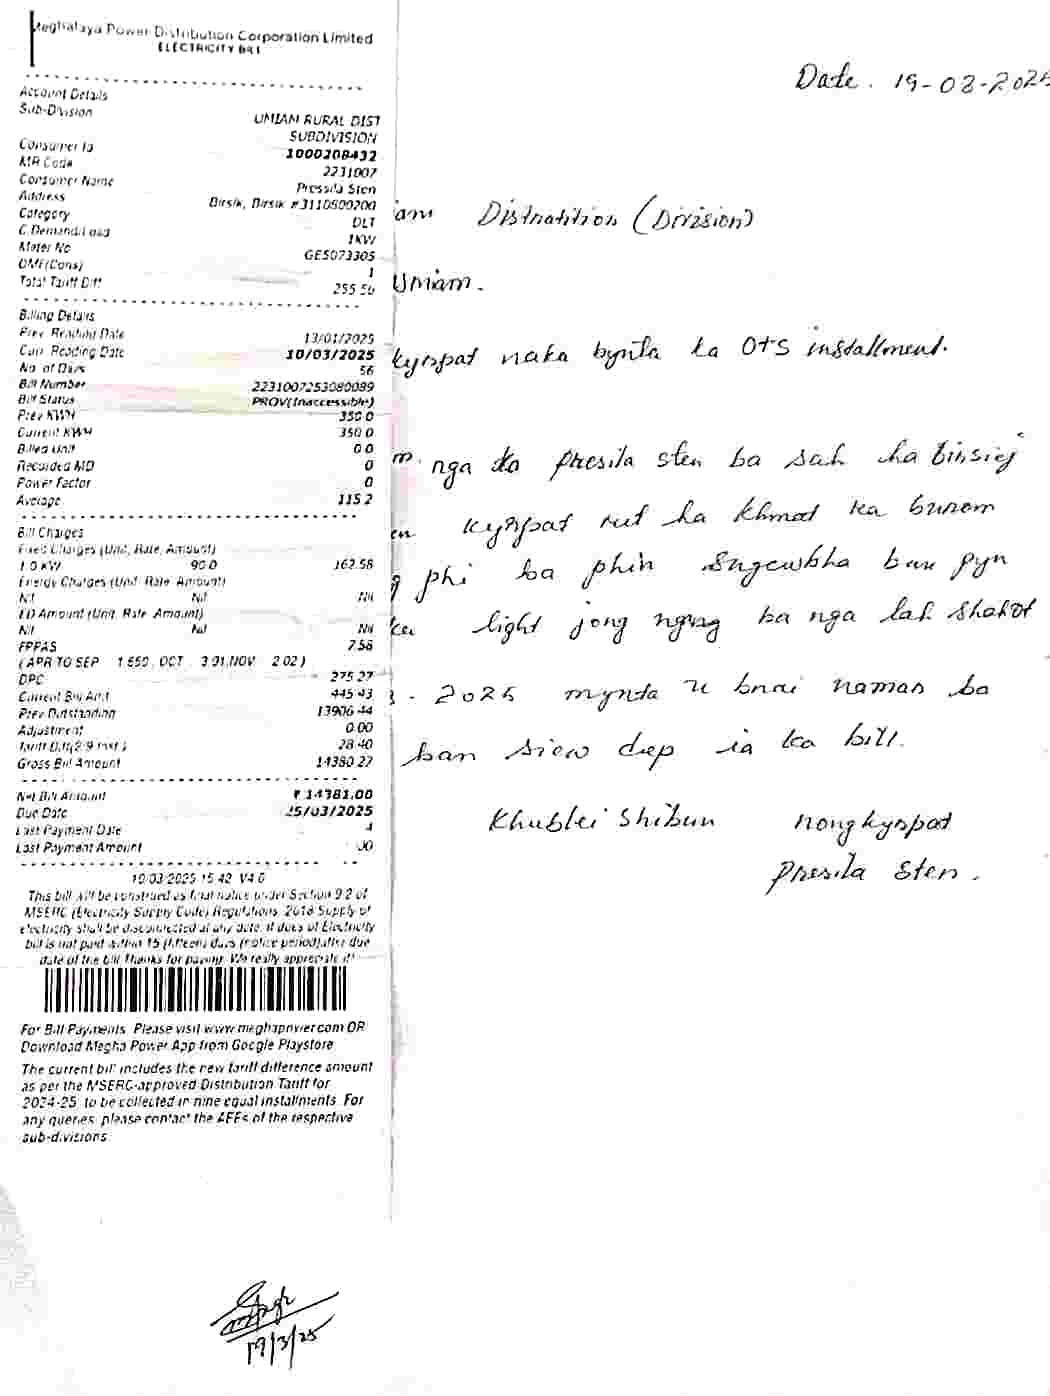 Meghalaya Power Distribution Corporation Limited
ELECTRICITY BILL
Account Details
Sub-Division UMIAM RURAL DIST
SUBDIVISION
Consumer Id 1000208432
MR Code 2231007
Consumer Name Pressila Sten
Address Birsik, Birsik #3110800200
Category DLT
C.Demand/Load 1KW
Meter No GE5073305
OMF(Cons) 1
Total Tariff Diff 255.56
Billing Details
Prev. Reading Date 13/01/2025
Curr. Reading Date 10/03/2025
No. of Days 56
Bill Number 2231007253080089
Bill Status PROV(Inaccessible)
Prev KWH 350.0
Current KWH 350.0
Billed Unit 0.0
Recorded MD 0
Power Factor 0
Average 115.2
Bill Charges
Fixed Charges (Unit, Rate, Amount)
1.0 KW 90.0 162.58
Energy Charges (Unit, Rate, Amount)
Nil Nil Nil
ED Amount (Unit, Rate, Amount)
Nil Nil Nil
FPPAS 7.58
(APR TO SEP 1.650, OCT 3.01, NOV 2.02)
DPC 275.27
Current Bill Amt 445.43
Prev Outstanding 13906.44
Adjustment 0.00
Tariff Diff(2/9 inst.) 28.40
Gross Bill Amount 14380.27
Net Bill Amount ₹ 14381.00
Due Date 25/03/2025
Last Payment Date
Last Payment Amount .00
10/03/2025 15:42 V4.6
This bill will be construed as final notice under Section 9.2 of
MSERC (Electricity Supply Code) Regulations, 2018 Supply of
electricity shall be disconnected at any date, if dues of Electricity
bill is not paid within 15 (fifteen) days (notice period) after due
date of the bill Thanks for paying. We really appreciate it!
For Bill Payments Please visit www.meghapower.com OR
Download Megha Power App from Google Playstore
The current bill includes the new tariff difference amount
as per the MSERC-approved Distribution Tariff for
2024-25, to be collected in nine equal installments. For
any queries, please contact the AEEs of the respective
sub-divisions
Date. 19-03-2025
iam Distnatition (Division)
Umiam.
kyrpat naka bynta ka OTS installment.
m. nga ka Presila sten ba sah ha Birsiej
en kyrpat rut ha khmat ka burom
phi ba phin sngewbha ban pyn
light jong ngng ba nga lah shakot
3 - 2025 mynta u bnai naman ba
ban siew diep ia ka bill.
Khublei shibun nongkyrpat
Presila Sten.
19/3/25